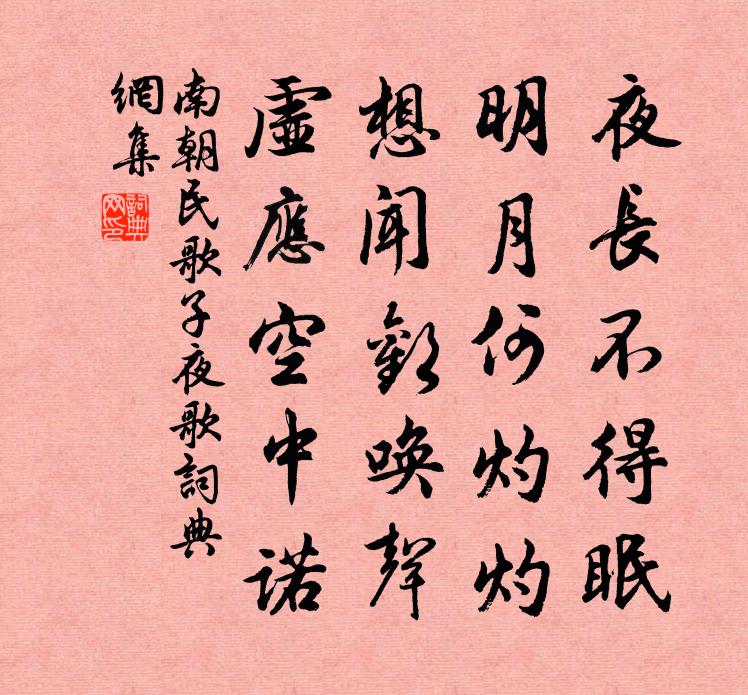 夜長不得眠
明月何灼灼
想聞歡喚聲
虛應空中諾
南朝民歌子夜歌詞典
網集
詞典
网印